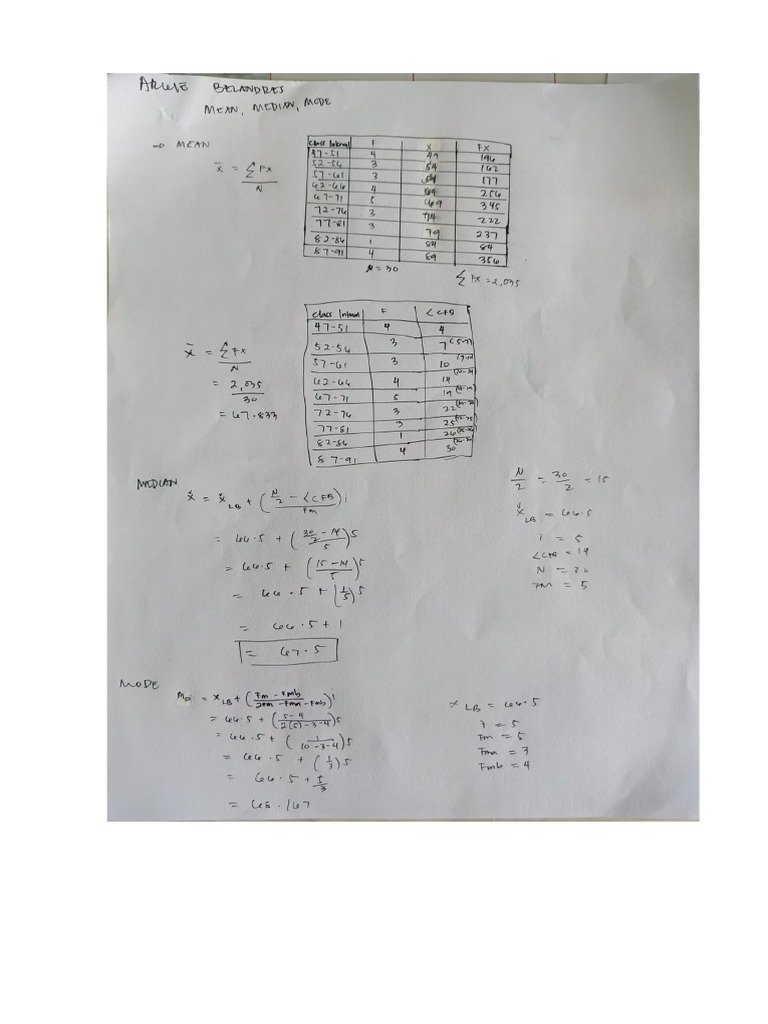 ARGIE BELANDRES
MEAN, MEDIAN, MODE
→ MEAN
x̄ = ΣFx
N
Class Interval F X FX
47-51 4 49 196
52-56 3 54 162
57-61 3 59 177
62-66 4 64 256
67-71 5 69 345
72-76 3 74 222
77-81 3 79 237
82-86 1 84 84
87-91 4 89 356
N = 30
ΣFX = 2,035
Class Interval F <CFB
47-51 4 4
52-56 3 7 (5-7)
57-61 3 10
62-66 4 14
67-71 5 19
72-76 3 22
77-81 3 25
82-86 1 26
87-91 4 30
x̄ = ΣFx
N
= 2,035
30
= 67.833
MEDIAN
x̃ = x̃ LB + (N/2 - <CFB / Fm) i
= 66.5 + (30/2 - 14 / 5) 5
= 66.5 + (15 - 14 / 5) 5
= 66.5 + (1/5) 5
= 66.5 + 1
= 67.5
N/2 = 30/2 = 15
x̃ LB = 66.5
i = 5
<CFB = 14
N = 30
FM = 5
MODE
= X LB + (Fm - Fmb / 2Fm - Fma - Fmb) i
= 66.5 + (5-4 / 2(5)-3-4) 5
= 66.5 + (1 / 10-3-4) 5
= 66.5 + (1/3) 5
= 66.5 + 5/3
= 68.167
X LB = 66.5
i = 5
Fm = 5
Fma = 3
Fmb = 4